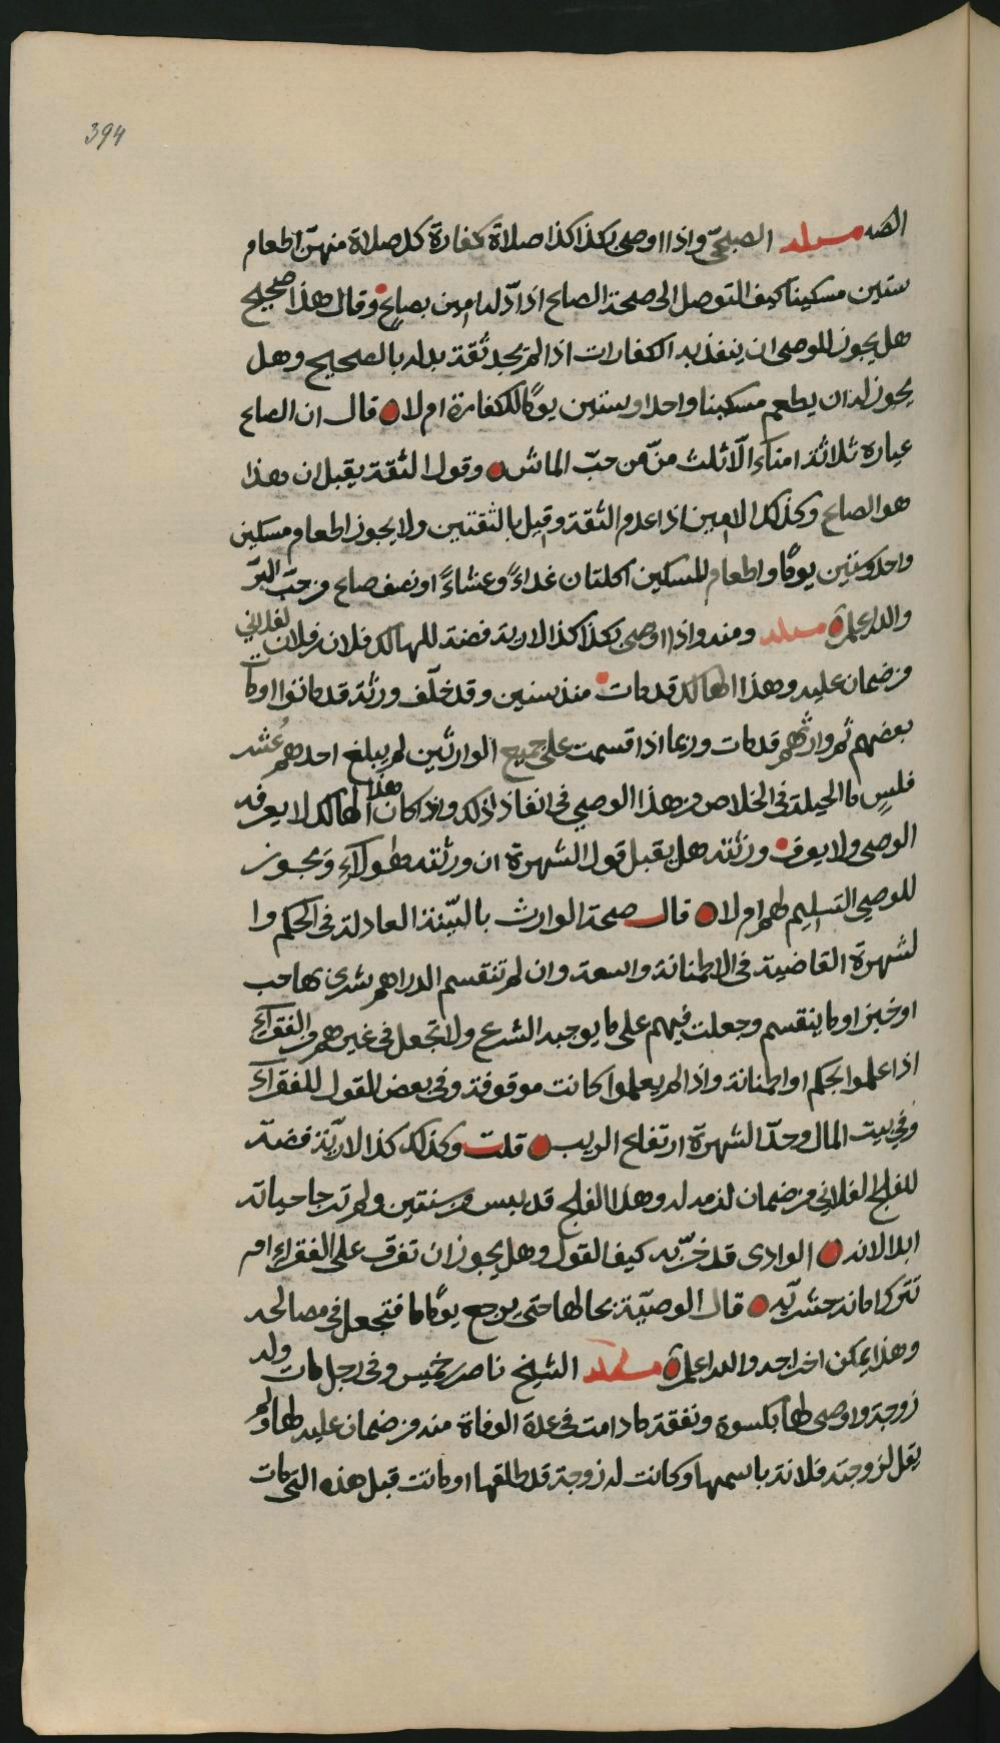 394
الصه مسئلة الصبحيّ واذا اوصى بكذا كذا صلاة كفارة كل صلاة منهنّ اطعام
ستين مسكينا كيف التوصل الى صحة الصاع اذا ادّ له امين بصاع وقال هذا صحيح
هل يجوز للوصي ان ينفذ به الكفارات اذا لم يجد ثقة يدله بالصحيح وهل
يجوز له ان يطعم مسكينا واحدا وستين يومًا للكفارة ام لا قال ان الصاع
عياره ثلاثة امناء الّا ثلث منّ من حبّ الماش وقول الثقة يقبل ان هذا
هو الصاع وكذلك الامين اذا عدم الثقة وقيل بالثقتين ولا يجوز اطعام مسكين
واحد وستين يومًا واطعام المسكين اكلتان غداءً وعشاءً او نصف صاع من حبّ البرّ
والله اعلم مسئلة ومنه واذا اوصى بكذا كذا لارية فضة للهالك فلان بن فلان الفلاني
من ضمان عليه وهذا الهالك قد مات منذ سنين وقد خلّف ورثة قد ماتوا او مات
بعضهم ثم وارثهم قد مات وربما اذا قسمت على جميع الوارثين لم يبلغ احدهم عُشر
فلسٍ ما الحيلة في الخلاص من هذا الوصي في انفاذ ذلك واذا كان هذا الهالك لا يعرفه
الوصي ولا يعرف ورثته هل يقبل قول الشهرة ان ورثته هؤلاءِ ويجوز
للوصي التسليم لهم ام لا قال صحة الوارث بالبيّنة العادلة في الحكم وا
لشهرة القاضية في الاطمنانة واسعة وان لم تنقسم الدراهم يشرى بها حب
او خبز او ما ينقسم وجعلت فيهم على ما يوجبه الشرع ولا تجعل في غيرهم والفقراءِ
اذا علموا بحكم او اطمنانة واذا لم يعلموا كانت موقوفة وفي بعض القول للفقراءِ
وفي بيت المال وحدّ الشهرة ارتفاع الريب قلت وكذلك كذا لاريّة فضة
للفلج الفلاني من ضمان لزمه له وهذا الفلج قد يبس من سنتين ولم ترجا حياته
ابدا لانه الوادى قد خرّبه كيف القول وهل يجوز ان تفرق على الفقراءِ ام
تترك امانة حشريّه قال الوصيّة بحالها حتى يرجع يومًا ما فتجعل في مصالحه
وهذا يمكن اخراجه والله اعلم مسئلة الشيخ ناصر خميس وفي رجل مات وله
زوجة واوصى لها بكسوة ونفقة ما دامت في عدة الوفاة منه من ضمان عليه لها ولم
يقل لزوجته فلانة باسمها وكانت له زوجة قد طلقها او ماتت قبل هذه التي مات